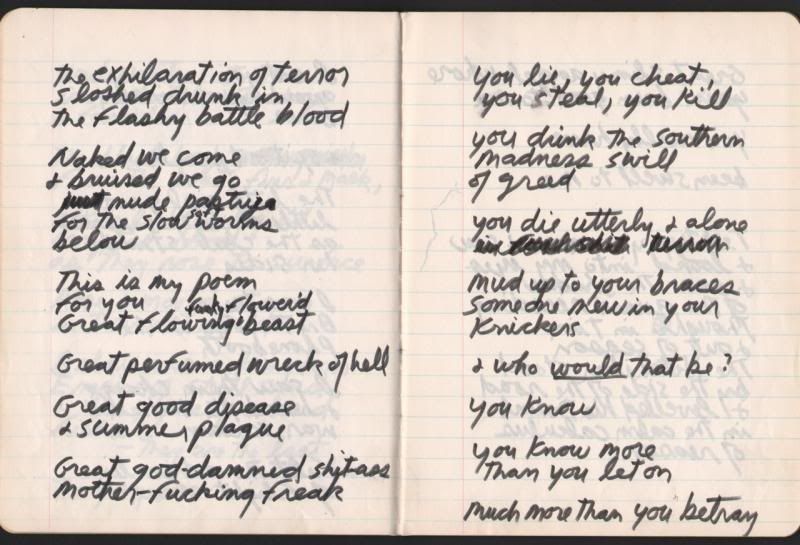 The exhilaration of terror
sloshed drunk in
the flashy battle blood
Naked we come
& bruised we go
just nude pastries
for the slow worms
below
This is my poem
for you
funky flower'd
Great flowing beast
Great perfumed wreck of hell
Great good disease
& summer plague
Great god-damned shit-ass
Mother-fucking freak
you lie, you cheat,
you steal, you kill
you drink the southern
madness swill
of greed
you die utterly & alone
terror
Mud up to your braces
Someone new in your
Knickers
& who would that be?
you know
you know more
than you let on
Much more than you betray